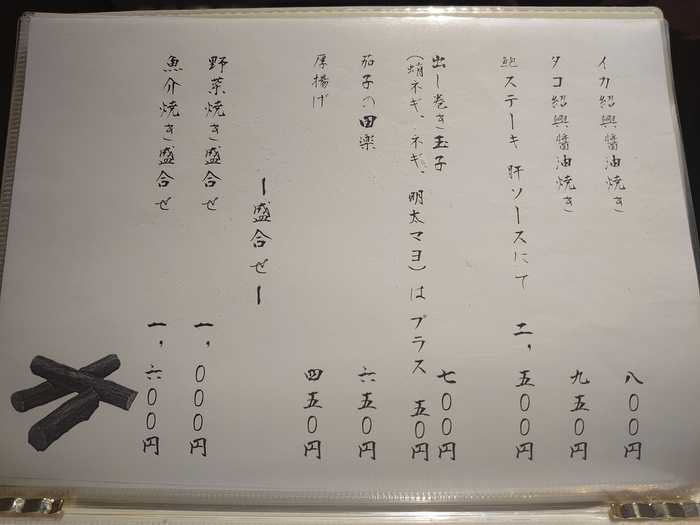 イカ紹興醤油焼き 八〇〇円
タコ紹興醤油焼き 九五〇円
鮑ステーキ 肝ソースにて 二,五〇〇円
出し巻き玉子 七〇〇円
(蛸ネギ、ネギ、明太マヨ)はプラス 五〇円
茄子の田楽 六五〇円
厚揚げ 四五〇円
ー盛合せー
野菜焼き盛合せ 一,〇〇〇円
魚介焼き盛合せ 一,六〇〇円